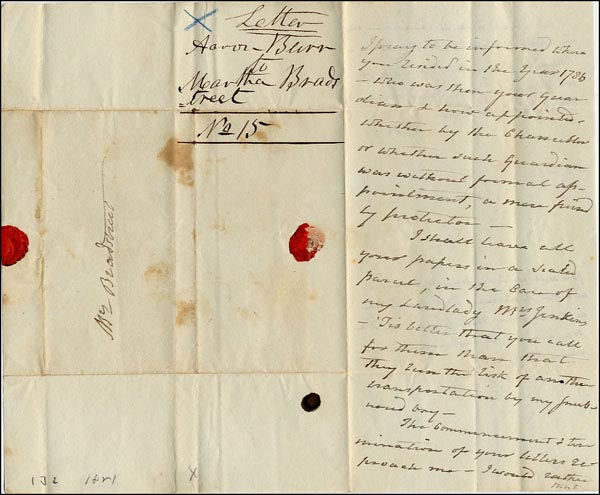 Letter
Aaron Burr
to
Martha Brads
=treet
No 15
Mrs Bradstreet
132 1821
X
I pray to be informed where
you resided in the Year 1786
- who was then your Guar
dian & how appointed -
whether by the Chancellor
or whether such Guardian
was without formal ap-
pointment, a mere friend
ly protector -
I shall leave all
your papers in a sealed
parcel, in the Care of
my Landlady Mrs Jenkins
- 'Tis better that you call
for them than that
they run the risk of another
transportation by my
boy -
The Commencement & ter
mination of your letters re
proach me - I would rather